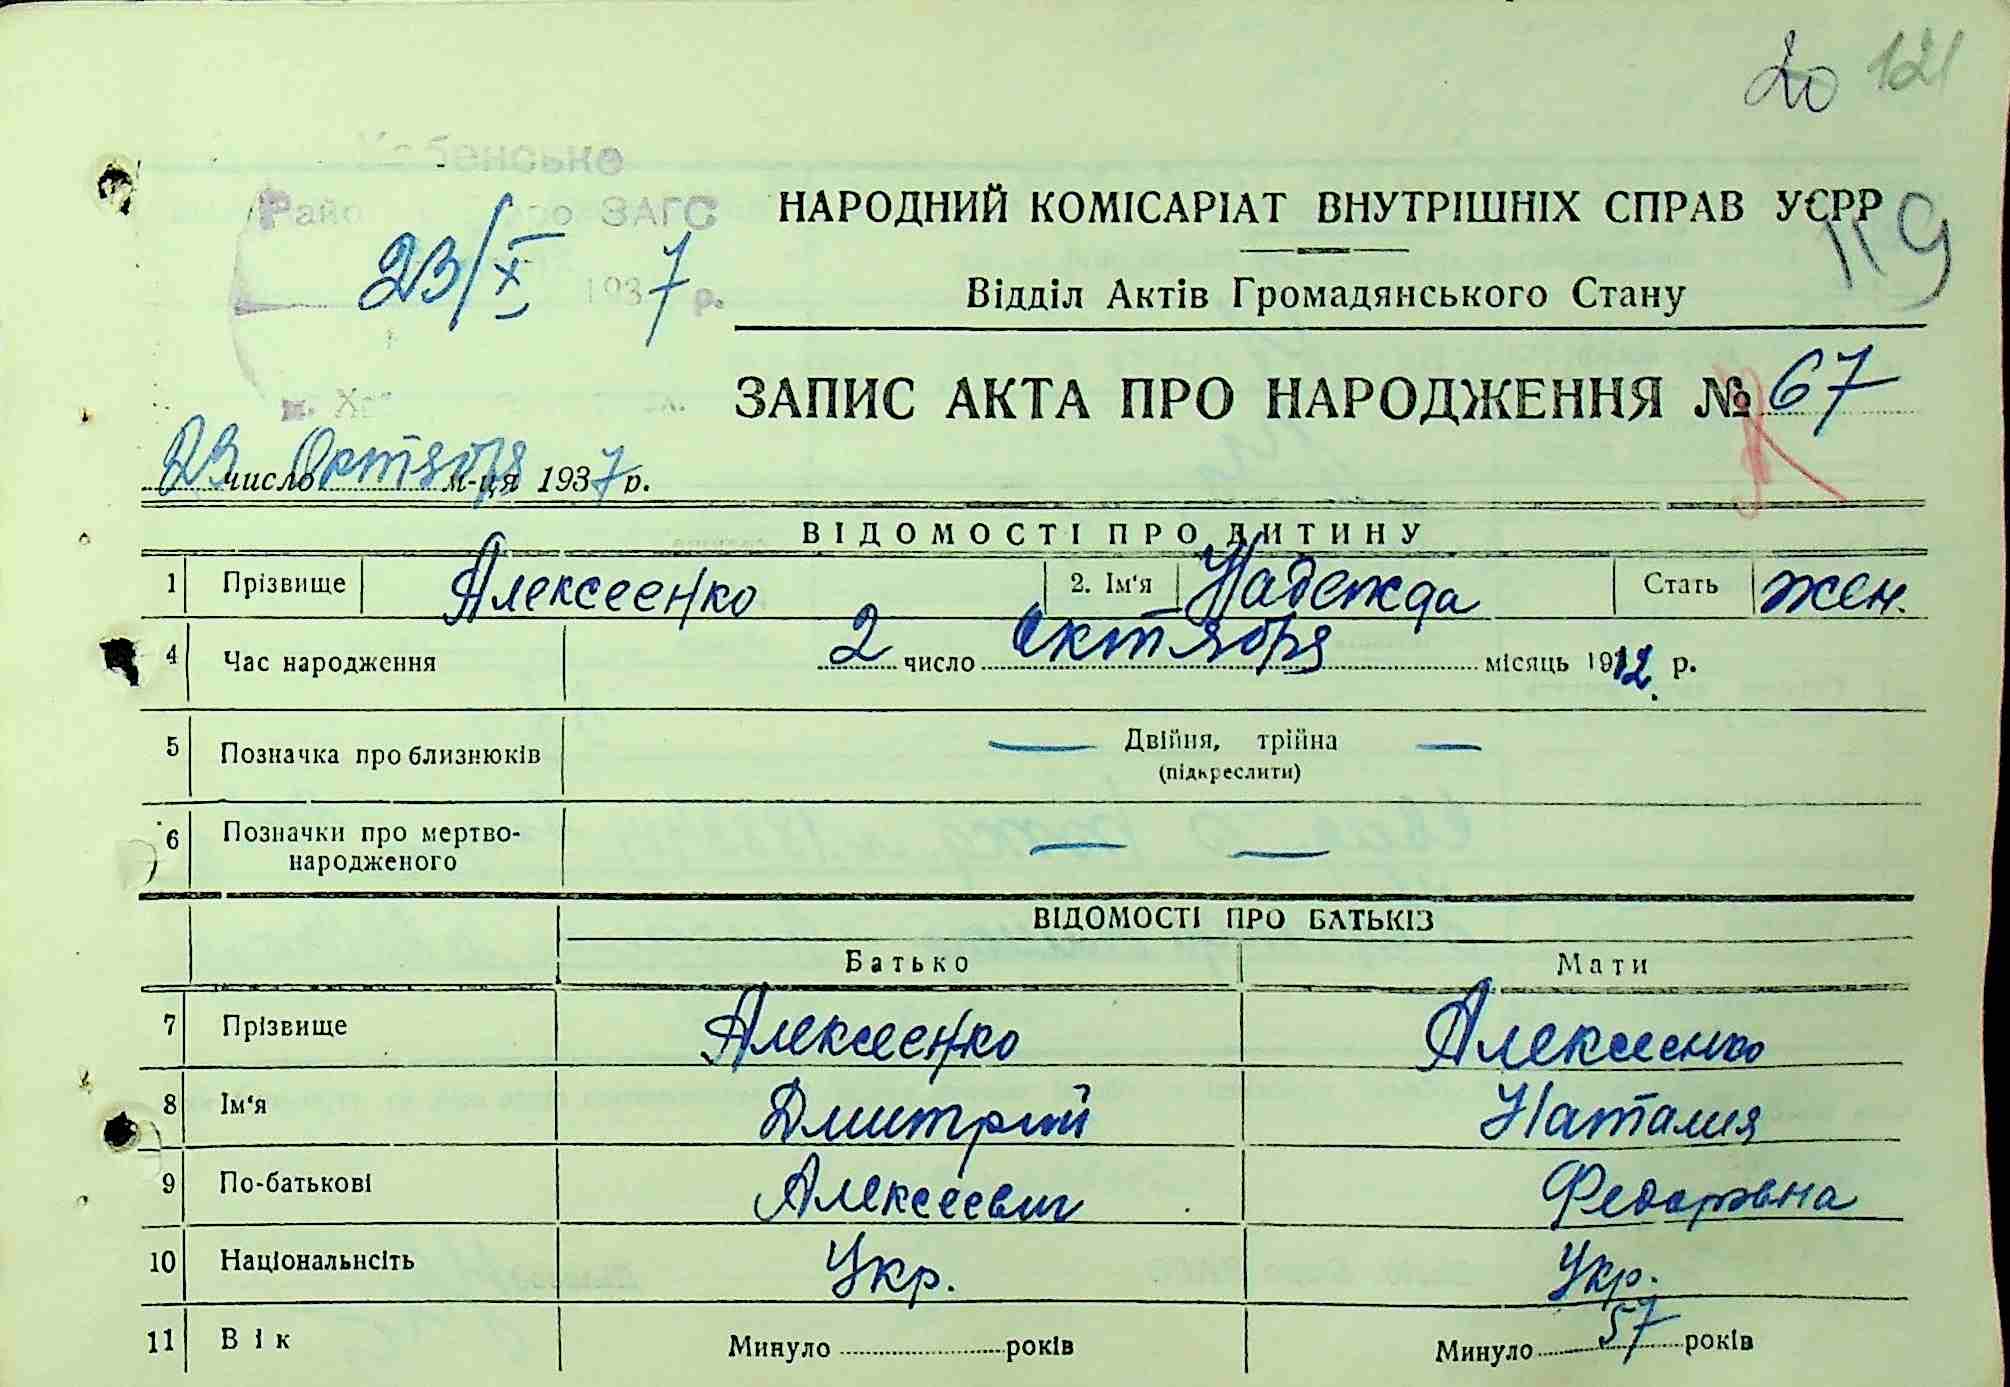 20 121
Районо ЗАГС
НАРОДНИЙ КОМІСАРІАТ ВНУТРІШНІХ СПРАВ УСРР
119
23/X 1937 р.
Відділ Актів Громадянського Стану
ЗАПИС АКТА ПРО НАРОДЖЕННЯ № 67
23 число Октября м-ця 1937 р.
ВІДОМОСТІ ПРО ДИТИНУ
1 Прізвище Алексеенко 2. Ім'я Надежда Стать жен.
4 Час народження 2 число Октября місяць 1912 р.
5 Позначка про близнюків — Двійня, трійна —
(підкреслити)
6 Позначки про мертво-
народженого — —
ВІДОМОСТІ ПРО БАТЬКІВ
Батько Мати
7 Прізвище Алексеенко Алексеенко
8 Ім'я Дмитрий Наталия
9 По-батькові Алексеевич Федоровна
10 Національнсіть Укр. Укр.
11 Вік Минуло років Минуло 57 років